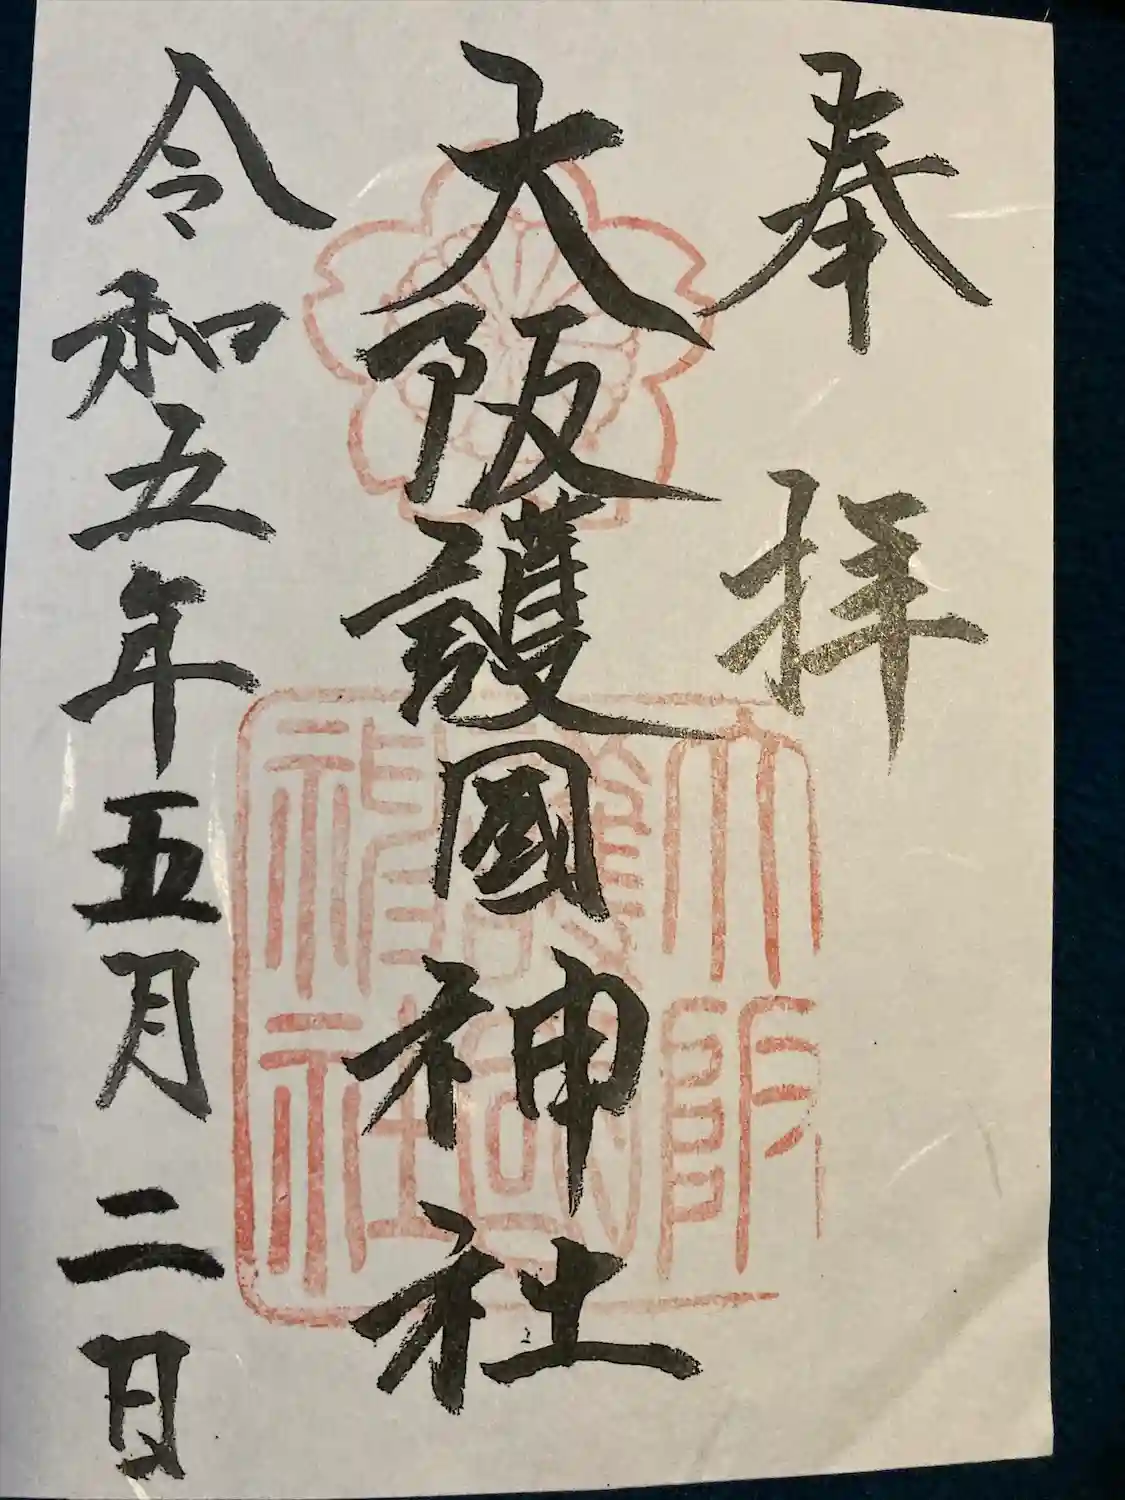 奉拝
大阪護國神社
令和五年五月二日
大阪護國神社